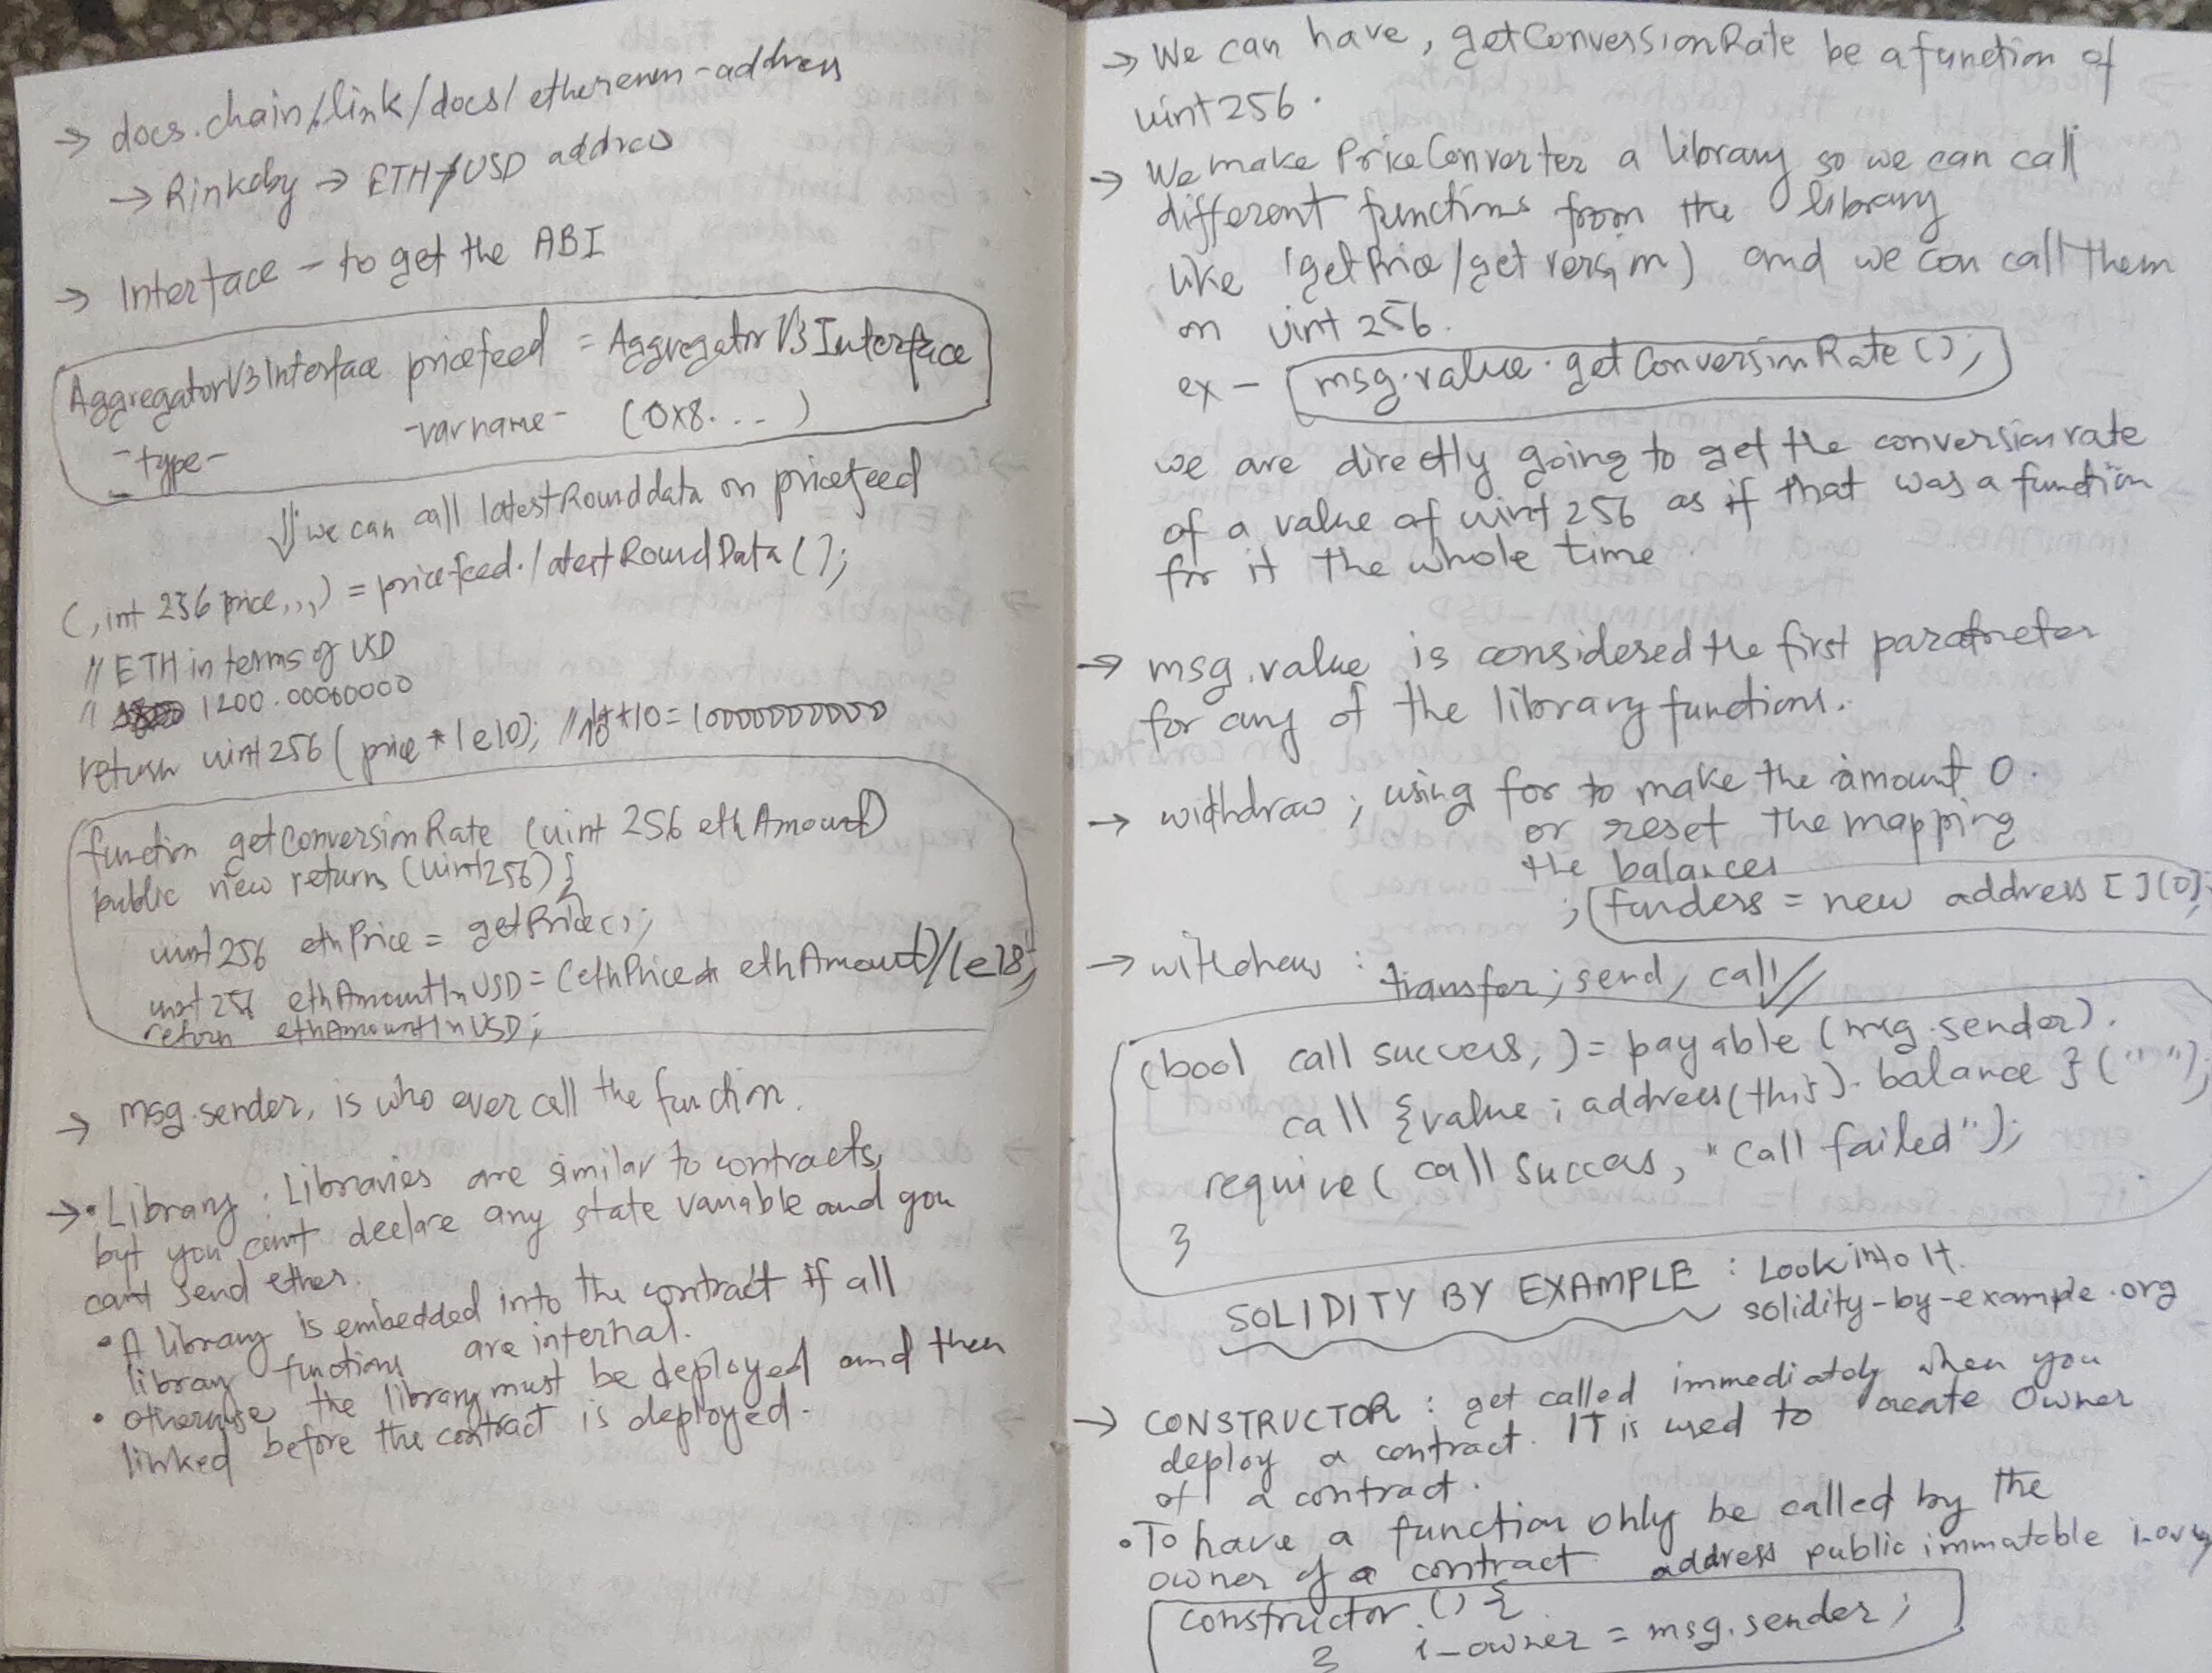 → docs.chain/link/docs/ethereum-address
→ Rinkeby → ETH/USD address
→ Interface - to get the ABI
AggregatorV3Interface pricefeed = AggregatorV3Interface
-type- -varname- (0x8...)
⇓ we can call latestRounddata on pricefeed
(,int 256 price,,,) = pricefeed.latestRoundData();
// ETH in terms of USD
// 1200.00000000
return uint256(price * 1e10); // 1**10 = 10000000000
function getConversionRate (uint 256 ethAmount)
public view returns (uint256) {
uint 256 ethPrice = getPrice();
uint 256 ethAmountInUSD = (ethPrice * ethAmount)/1e18;
return ethAmountInUSD;
→ msg.sender, is who ever call the function.
→ • Library : Libraries are similar to contracts,
but you can't declare any state variable and you
cant send ether.
• A library is embedded into the contract if all
library functions are internal.
• otherwise the library must be deployed and then
linked before the contract is deployed.
→ We can have, getConversionRate be a function of
uint256.
→ We make PriceConverter a library so we can call
different functions from the library
like (getPrice/get version) and we can call them
on uint 256.
ex - msg.value.getConversionRate();
we are directly going to get the conversion rate
of a value of uint 256 as if that was a function
for it the whole time.
→ msg.value is considered the first parameter
for any of the library functions.
→ withdraw ; using for to make the amount 0.
or reset the mapping
the balances
; funders = new address [](0);
→ withdraw : transfer; send, call //
(bool call success, ) = payable (msg.sender).
call {value ; address(this). balance } (" ");
require ( call Success, "Call failed");
}
SOLIDITY BY EXAMPLE : Look into It.
solidity-by-example.org
→ CONSTRUCTOR : get called immediately when you
deploy a contract. IT is used to create Owner
of a contract.
• To have a function only be called by the
owner of a contract address public immutable
constructor () {
} i_owner = msg.sender;